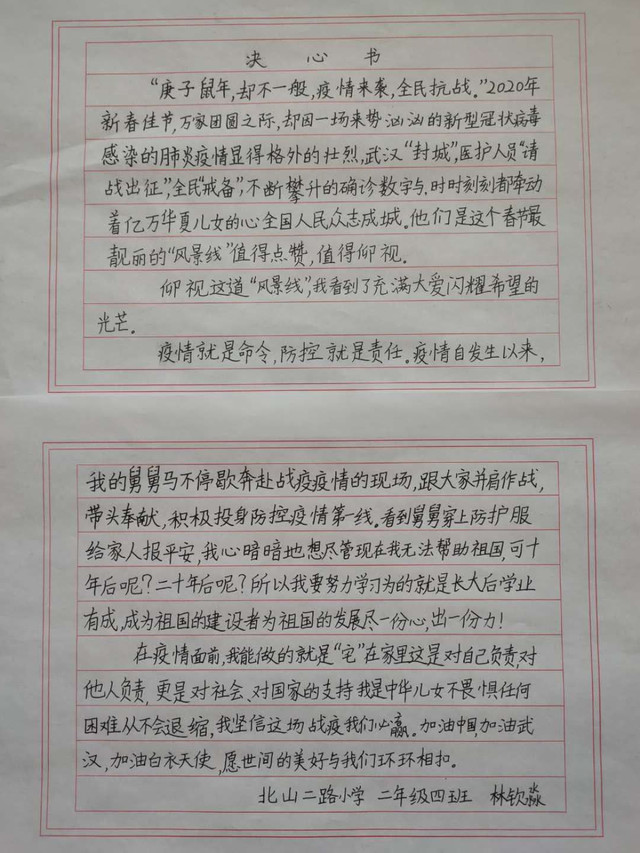 决心书
“庚子鼠年,却不一般,疫情来袭,全民抗战。”2020年
新春佳节,万家团圆之际,却因一场来势汹汹的新型冠状病毒
感染的肺炎疫情显得格外的壮烈,武汉“封城”,医护人员“请
战出征”,全民“戒备”,不断攀升的确诊数字与.时时刻刻都牵动
着亿万华夏儿女的心全国人民众志成城。他们是这个春节最
靓丽的“风景线”值得点赞,值得仰视.
仰视这道“风景线”,我看到了充满大爱闪耀希望的
光芒.
疫情就是命令,防控就是责任.疫情自发生以来,
我的舅舅马不停歇奔赴战疫疫情的现场,跟大家并肩作战,
带头奉献,积极投身防控疫情第一线.看到舅舅穿上防护服
给家人报平安,我心暗暗地想尽管现在我无法帮助祖国,可十
年后呢?二十年后呢?所以我要努力学习为的就是长大后学业
有成,成为祖国的建设者为祖国的发展尽一份心,出一份力!
在疫情面前,我能做的就是“宅”在家里这是对自己负责,对
他人负责,更是对社会、对国家的支持我是中华儿女不畏惧任何
困难从不会退缩,我坚信这场战疫我们必赢。加油中国,加油武
汉,加油白衣天使,愿世间的美好与我们环环相扣.
北山二路小学 二年级四班 林钦淼